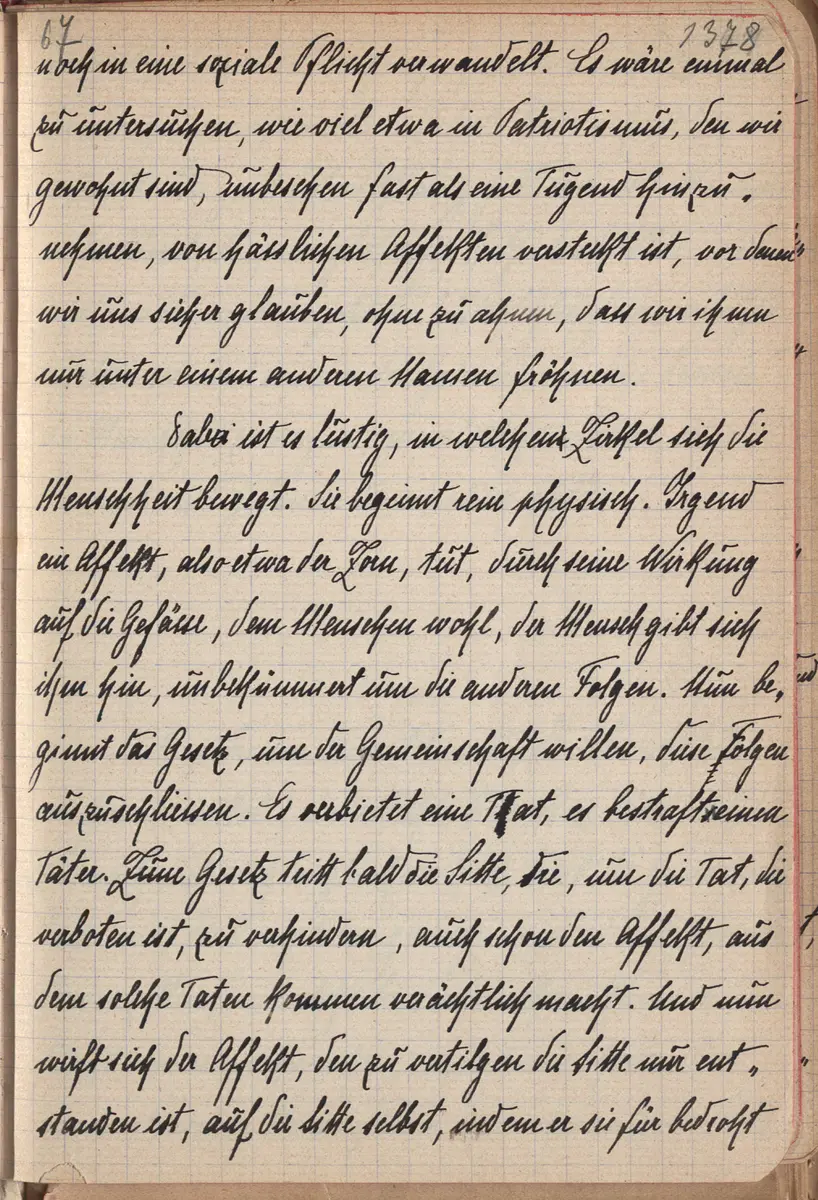 67 1378
noch in eine soziale Pflicht verwandelt. Es wäre einmal
zu untersuchen, wie viel etwa in Patriotismus, den wir
gewohnt sind, unbesehen fast als eine Tugend hinzu„
nehmen, von hässlichen Affekten versteckt ist, vor denen
wir uns sicher glauben, ohne zu ahnen, dass wir ihnen
nur unter einem anderen Namen fröhnen.
Dabei ist es lustig, in welchem Zirkel sich die
Menschheit bewegt. Sie beginnt rein physisch. Irgend
ein Affekt, also etwa der Zorn, tut, durch seine Wirkung
auf die Gefässe, dem Menschen wohl, der Mensch gibt sich
ihm hin, unbekümmert um die anderen Folgen. Nun be„
ginnt das Gesetz, um der Gemeinschaft willen, diese Folgen
auszuschliessen. Es verbietet eine Tat, es bestraft einen
Täter. Zum Gesetz tritt bald die Sitte, die, um die Tat, die
verboten ist, zu verhindern, auch schon den Affekt, aus
dem solche Taten kommen verächtlich macht. Und nun
wirft sich der Affekt, den zu vertilgen die Sitte nur ent„
standen ist, auf die Sitte selbst, indem er sie für bedroht